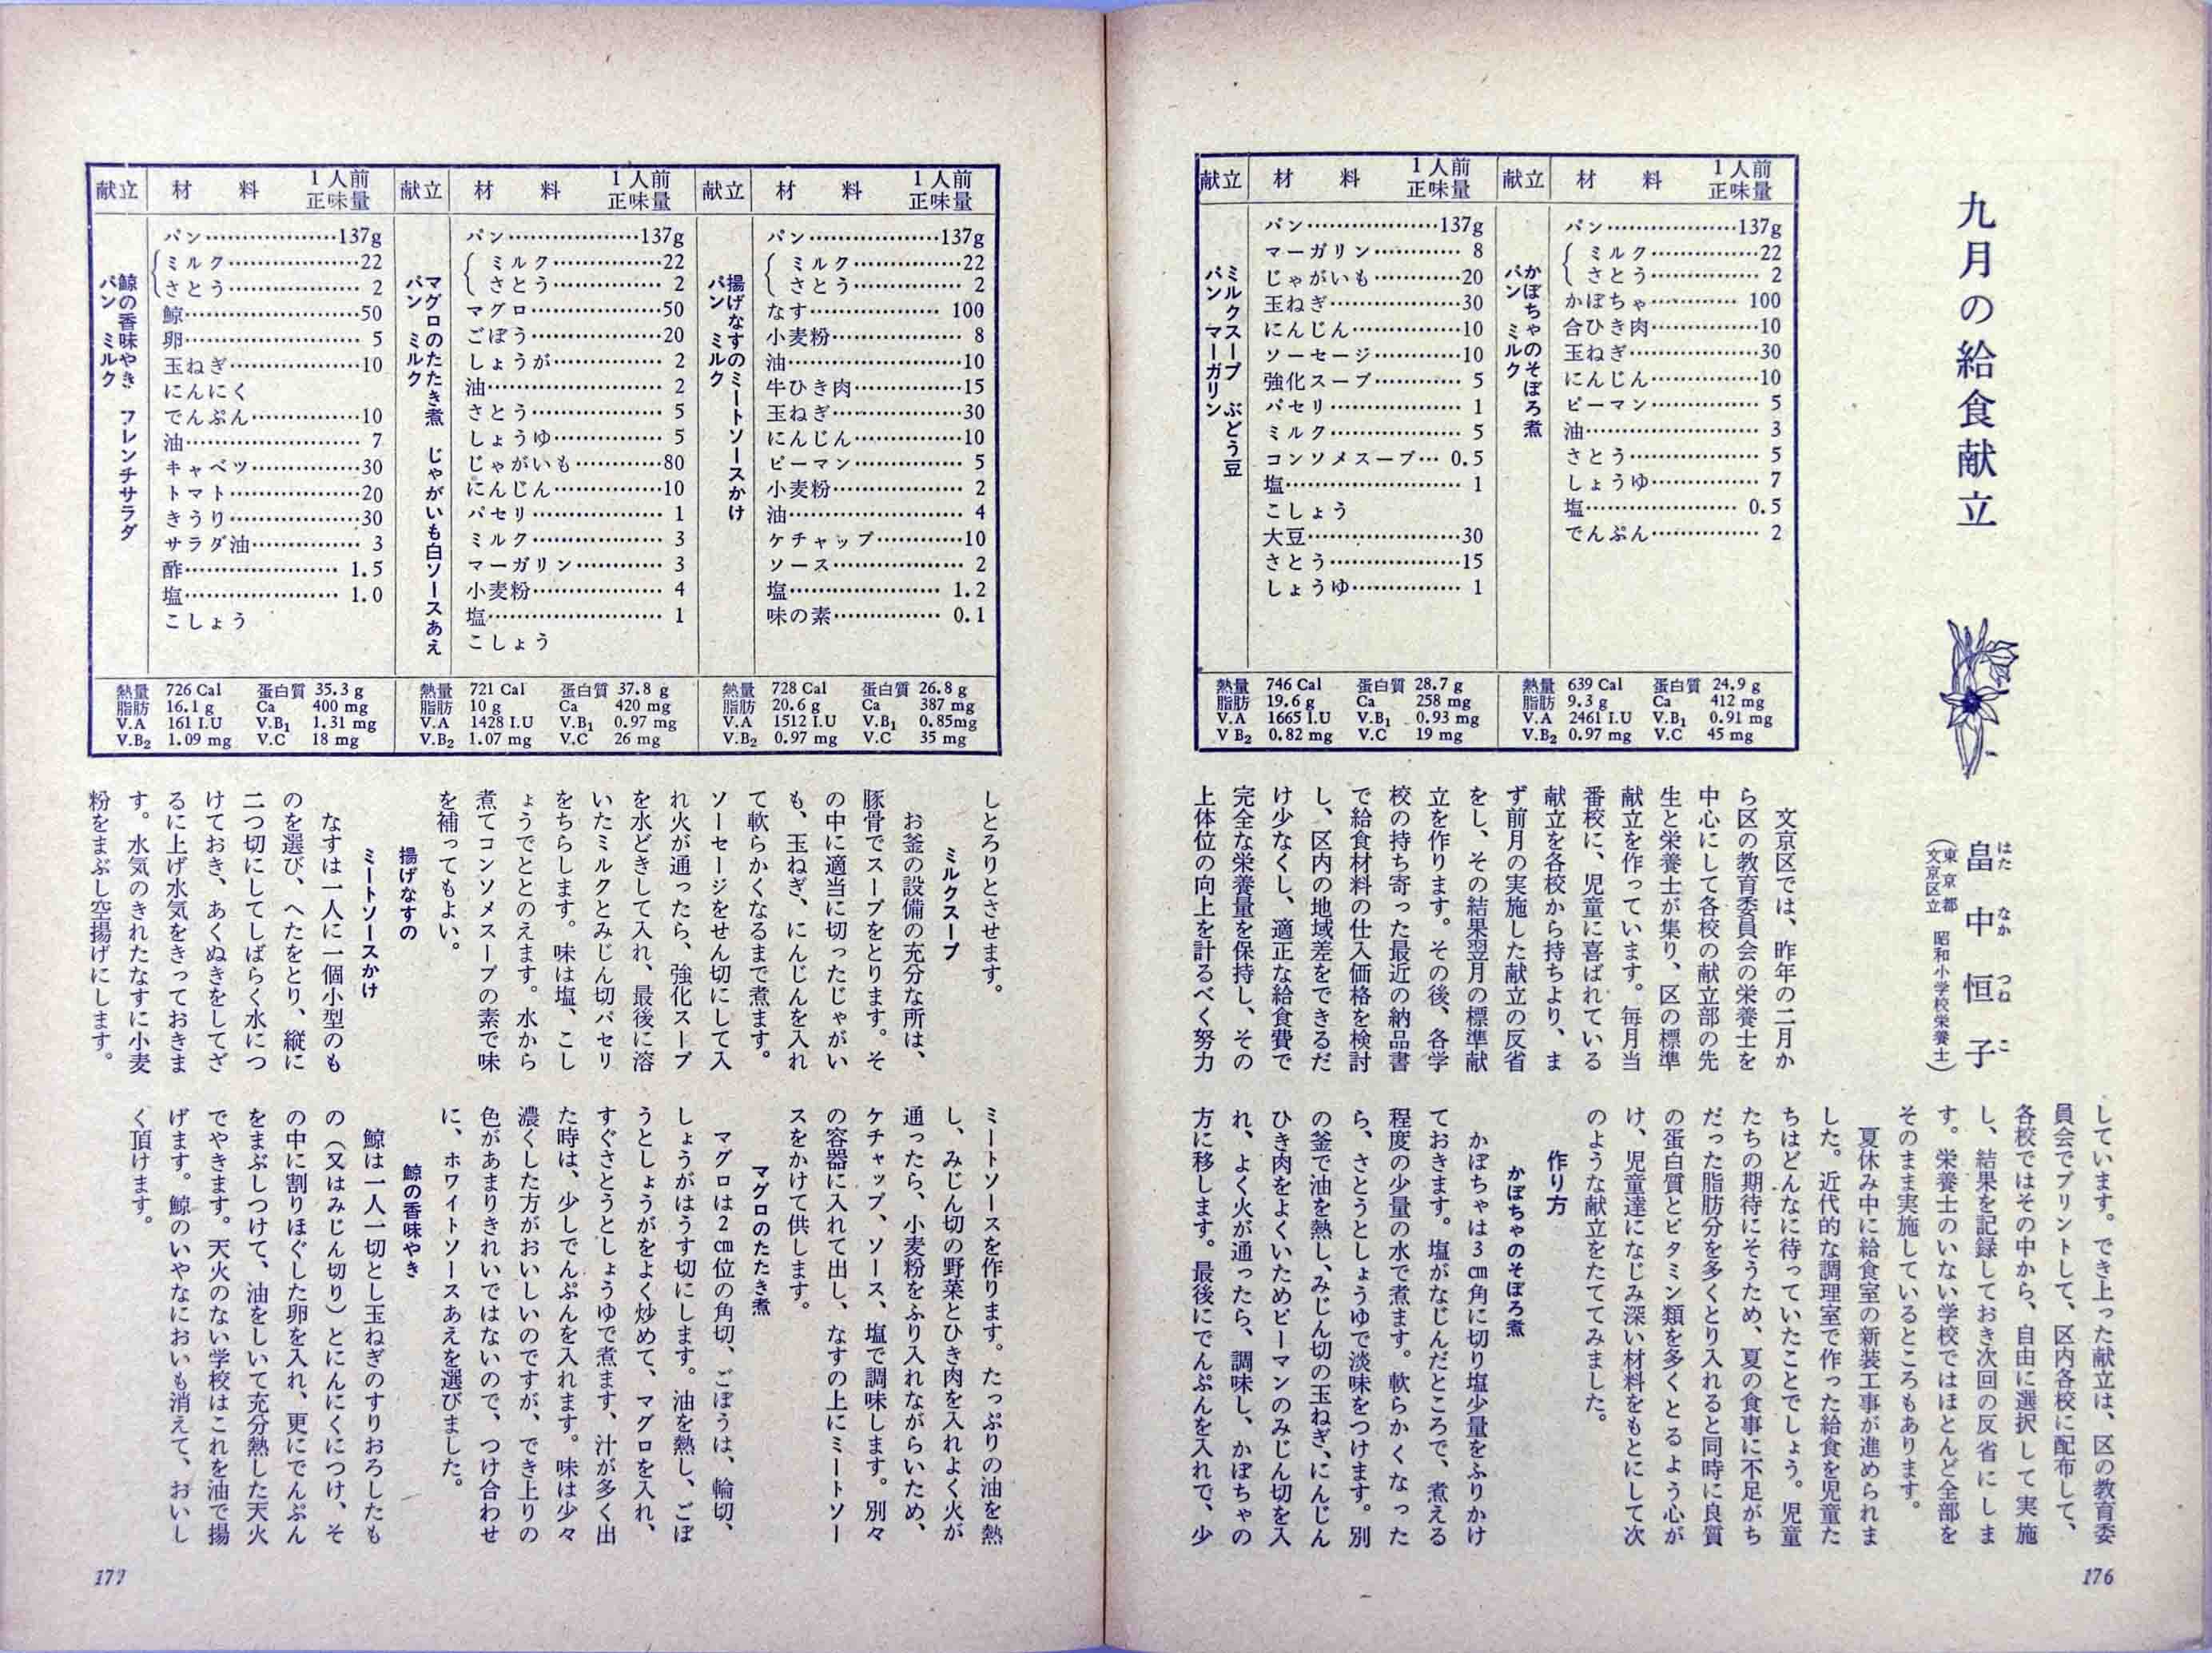 九月の給食献立
畠中恒子
はた なか つね こ
(東京都文京区立 昭和小学校栄養士)
献立 材料 1人前正味量
かぼちゃのそぼろ煮
パン ミルク
パン………137g
ミルク………22
さとう………2
かぼちゃ………100
合ひき肉………10
玉ねぎ………30
にんじん………10
ピーマン………5
油………3
さとう………5
しょうゆ………7
塩………0.5
でんぷん………2
熱量 639 Cal 蛋白質 24.9 g
脂肪 9.3 g Ca 412 mg
V.A 2461 I.U V.B₁ 0.91 mg
V.B₂ 0.97 mg V.C 45 mg
献立 材料 1人前正味量
ミルクスープ ぶどう豆
パン マーガリン
パン………137g
マーガリン………8
じゃがいも………20
玉ねぎ………30
にんじん………10
ソーセージ………10
強化スープ………5
パセリ………1
ミルク………5
コンソメスープ…0.5
塩………1
こしょう
大豆………30
さとう………15
しょうゆ………1
熱量 746 Cal 蛋白質 28.7 g
脂肪 19.6 g Ca 258 mg
V.A 1665 I.U V.B₁ 0.93 mg
V B₂ 0.82 mg V.C 19 mg
文京区では、昨年の二月か
ら区の教育委員会の栄養士を
中心にして各校の献立部の先
生と栄養士が集り、区の標準
献立を作っています。毎月当
番校に、児童に喜ばれている
献立を各校から持ちより、ま
ず前月の実施した献立の反省
をし、その結果翌月の標準献
立を作ります。その後、各学
校の持ち寄った最近の納品書
で給食材料の仕入価格を検討
し、区内の地域差をできるだ
け少なくし、適正な給食費で
完全な栄養量を保持し、その
上体位の向上を計るべく努力
しています。でき上った献立は、区の教育委
員会でプリントして、区内各校に配布して、
各校ではその中から、自由に選択して実施
し、結果を記録しておき次回の反省にしま
す。栄養士のいない学校ではほとんど全部を
そのまま実施しているところもあります。
夏休み中に給食室の新装工事が進められま
した。近代的な調理室で作った給食を児童た
ちはどんなに待っていたことでしょう。児童
たちの期待にそうため、夏の食事に不足がち
だった脂肪分を多くとり入れると同時に良質
の蛋白質とビタミン類を多くとるよう心が
け、児童達になじみ深い材料をもとにして次
のような献立をたててみました。
作り方
かぼちゃのそぼろ煮
かぼちゃは3㎝角に切り塩少量をふりかけ
ておきます。塩がなじんだところで、煮える
程度の少量の水で煮ます。軟らかくなった
ら、さとうとしょうゆで淡味をつけます。別
の釜で油を熱し、みじん切の玉ねぎ、にんじん
ひき肉をよくいためピーマンのみじん切を入
れ、よく火が通ったら、調味し、かぼちゃの
方に移します。最後にでんぷんを入れて、少
176
献立 材料 1人前正味量
揚げなすのミートソースかけ
パン ミルク
パン………137g
ミルク………22
さとう………2
なす………100
小麦粉………8
油………10
牛ひき肉………15
玉ねぎ………30
にんじん………10
ピーマン………5
小麦粉………2
油………4
ケチャップ………10
ソース………2
塩………1.2
味の素………0.1
熱量 728 Cal 蛋白質 26.8 g
脂肪 20.6 g Ca 387 mg
V.A 1512 I.U V.B₁ 0.85mg
V.B₂ 0.97 mg V.C 35 mg
献立 材料 1人前正味量
マグロのたたき煮 じゃがいも白ソースあえ
パン ミルク
パン………137g
ミルク………22
さとう………2
マグロ………50
ごぼう………20
しょうが………2
油………2
さとう………5
しょうゆ………5
じゃがいも………80
にんじん………10
パセリ………1
ミルク………3
マーガリン………3
小麦粉………4
塩………1
こしょう
熱量 721 Cal 蛋白質 37.8 g
脂肪 10 g Ca 420 mg
V.A 1428 I.U V.B₁ 0.97 mg
V.B₂ 1.07 mg V.C 26 mg
献立 材料 1人前正味量
鯨の香味やき フレンチサラダ
パン ミルク
パン………137g
ミルク………22
さとう………2
鯨………50
卵………5
玉ねぎ………10
にんにく
でんぷん………10
油………7
キャベツ………30
トマト………20
きうり………30
サラダ油………3
酢………1.5
塩………1.0
こしょう
熱量 726 Cal 蛋白質 35.3 g
脂肪 16.1 g Ca 400 mg
V.A 161 I.U V.B₁ 1.31 mg
V.B₂ 1.09 mg V.C 18 mg
しとろりとさせます。
ミルクスープ
お釜の設備の充分な所は、
豚骨でスープをとります。そ
の中に適当に切ったじゃがい
も、玉ねぎ、にんじんを入れ
て軟らかくなるまで煮ます。
ソーセージをせん切にして入
れ火が通ったら、強化スープ
を水どきして入れ、最後に溶
いたミルクとみじん切パセリ
をちらします。味は塩、こし
ょうでととのえます。水から
煮てコンソメスープの素で味
を補ってもよい。
揚げなすの
ミートソースかけ
なすは一人に一個小型のも
のを選び、へたをとり、縦に
二つ切にしてしばらく水につ
けておき、あくぬきをしてざ
るに上げ水気をきっておきま
す。水気のきれたなすに小麦
粉をまぶし空揚げにします。
ミートソースを作ります。たっぷりの油を熱
し、みじん切の野菜とひき肉を入れよく火が
通ったら、小麦粉をふり入れながらいため、
ケチャップ、ソース、塩で調味します。別々
の容器に入れて出し、なすの上にミートソー
スをかけて供します。
マグロのたたき煮
マグロは2㎝位の角切、ごぼうは、輪切、
しょうがはうす切にします。油を熱し、ごぼ
うとしょうがをよく炒めて、マグロを入れ、
すぐさとうとしょうゆで煮ます、汁が多く出
た時は、少しでんぷんを入れます。味は少々
濃くした方がおいしいのですが、でき上りの
色があまりきれいではないので、つけ合わせ
に、ホワイトソースあえを選びました。
鯨の香味やき
鯨は一人一切とし玉ねぎのすりおろしたも
の(又はみじん切り)とにんにくにつけ、そ
の中に割りほぐした卵を入れ、更にでんぷん
をまぶしつけて、油をしいて充分熱した天火
でやきます。天火のない学校はこれを油で揚
げます。鯨のいやなにおいも消えて、おいし
く頂けます。
177